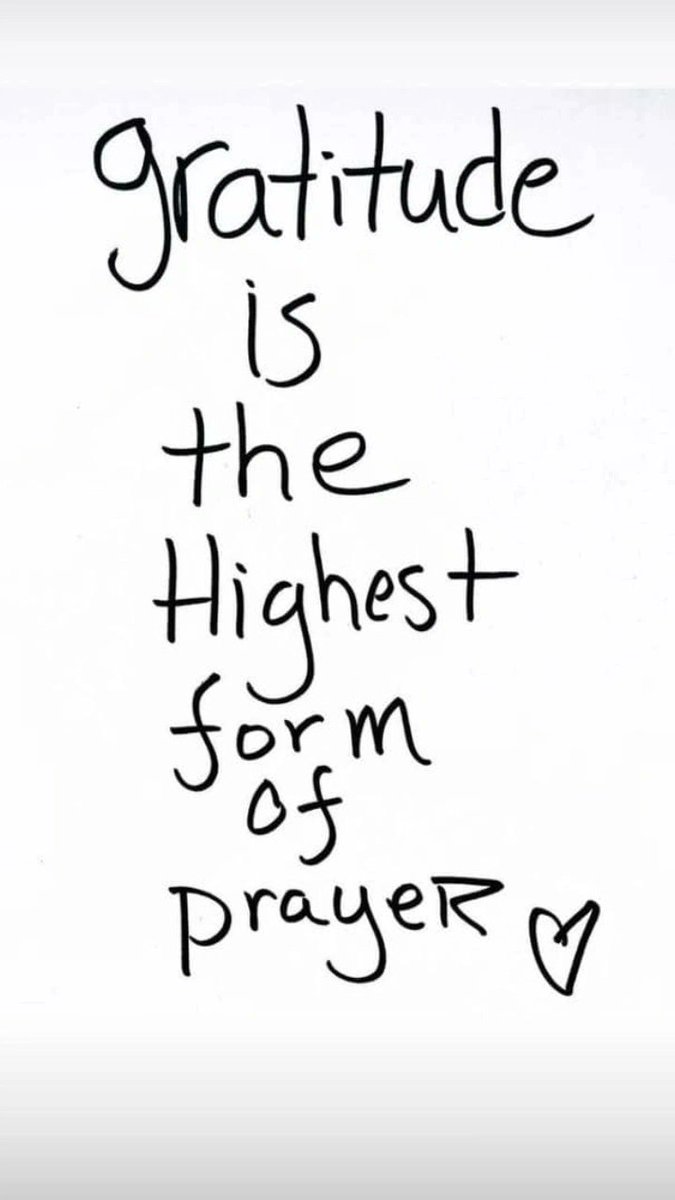 gratitude
is
the
Highest
form
of
prayeR